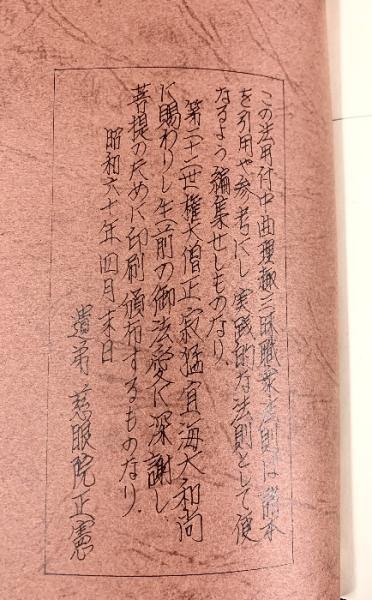 この法用付中曲理趣三昧職衆法則は諸本
を引用や参考にし実践的な法則として使
なるよう編集せしものなり
第二十二世権大僧正寂猛宜海大和尚
に賜わりし生前の御法愛に深謝し
菩提のために印刷頒布するものなり
昭和六十年四月末日
遺弟 慈眼院正憲